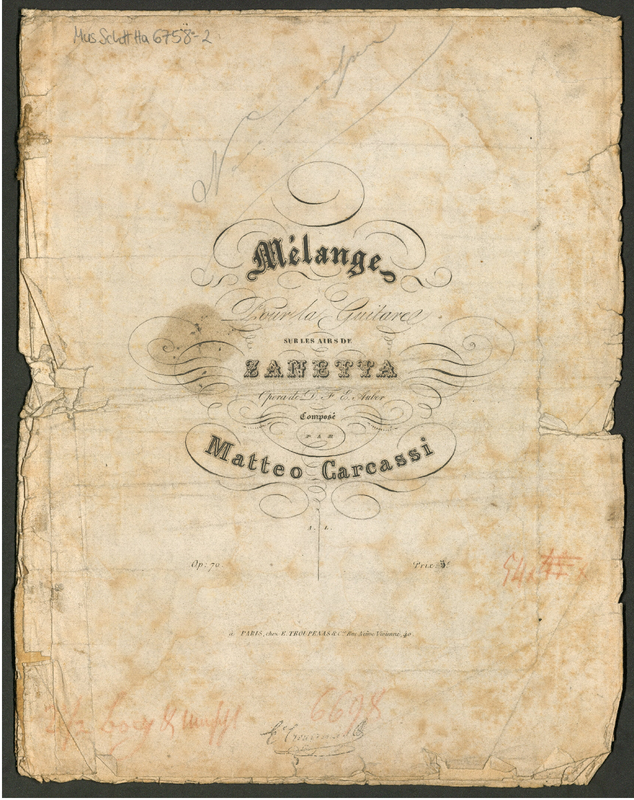 Mus Schott Ha 6758-2
Mélange
Pour la Guitare
SUR LES AIRS DE
ZANETTA
Opéra de D. F. E. Auber
Composé
PAR
Matteo Carcassi
Op: 70
Prix
à PARIS, chez E. TROUPENAS & Cie Rue Neuve Vivienne, 40.
6698